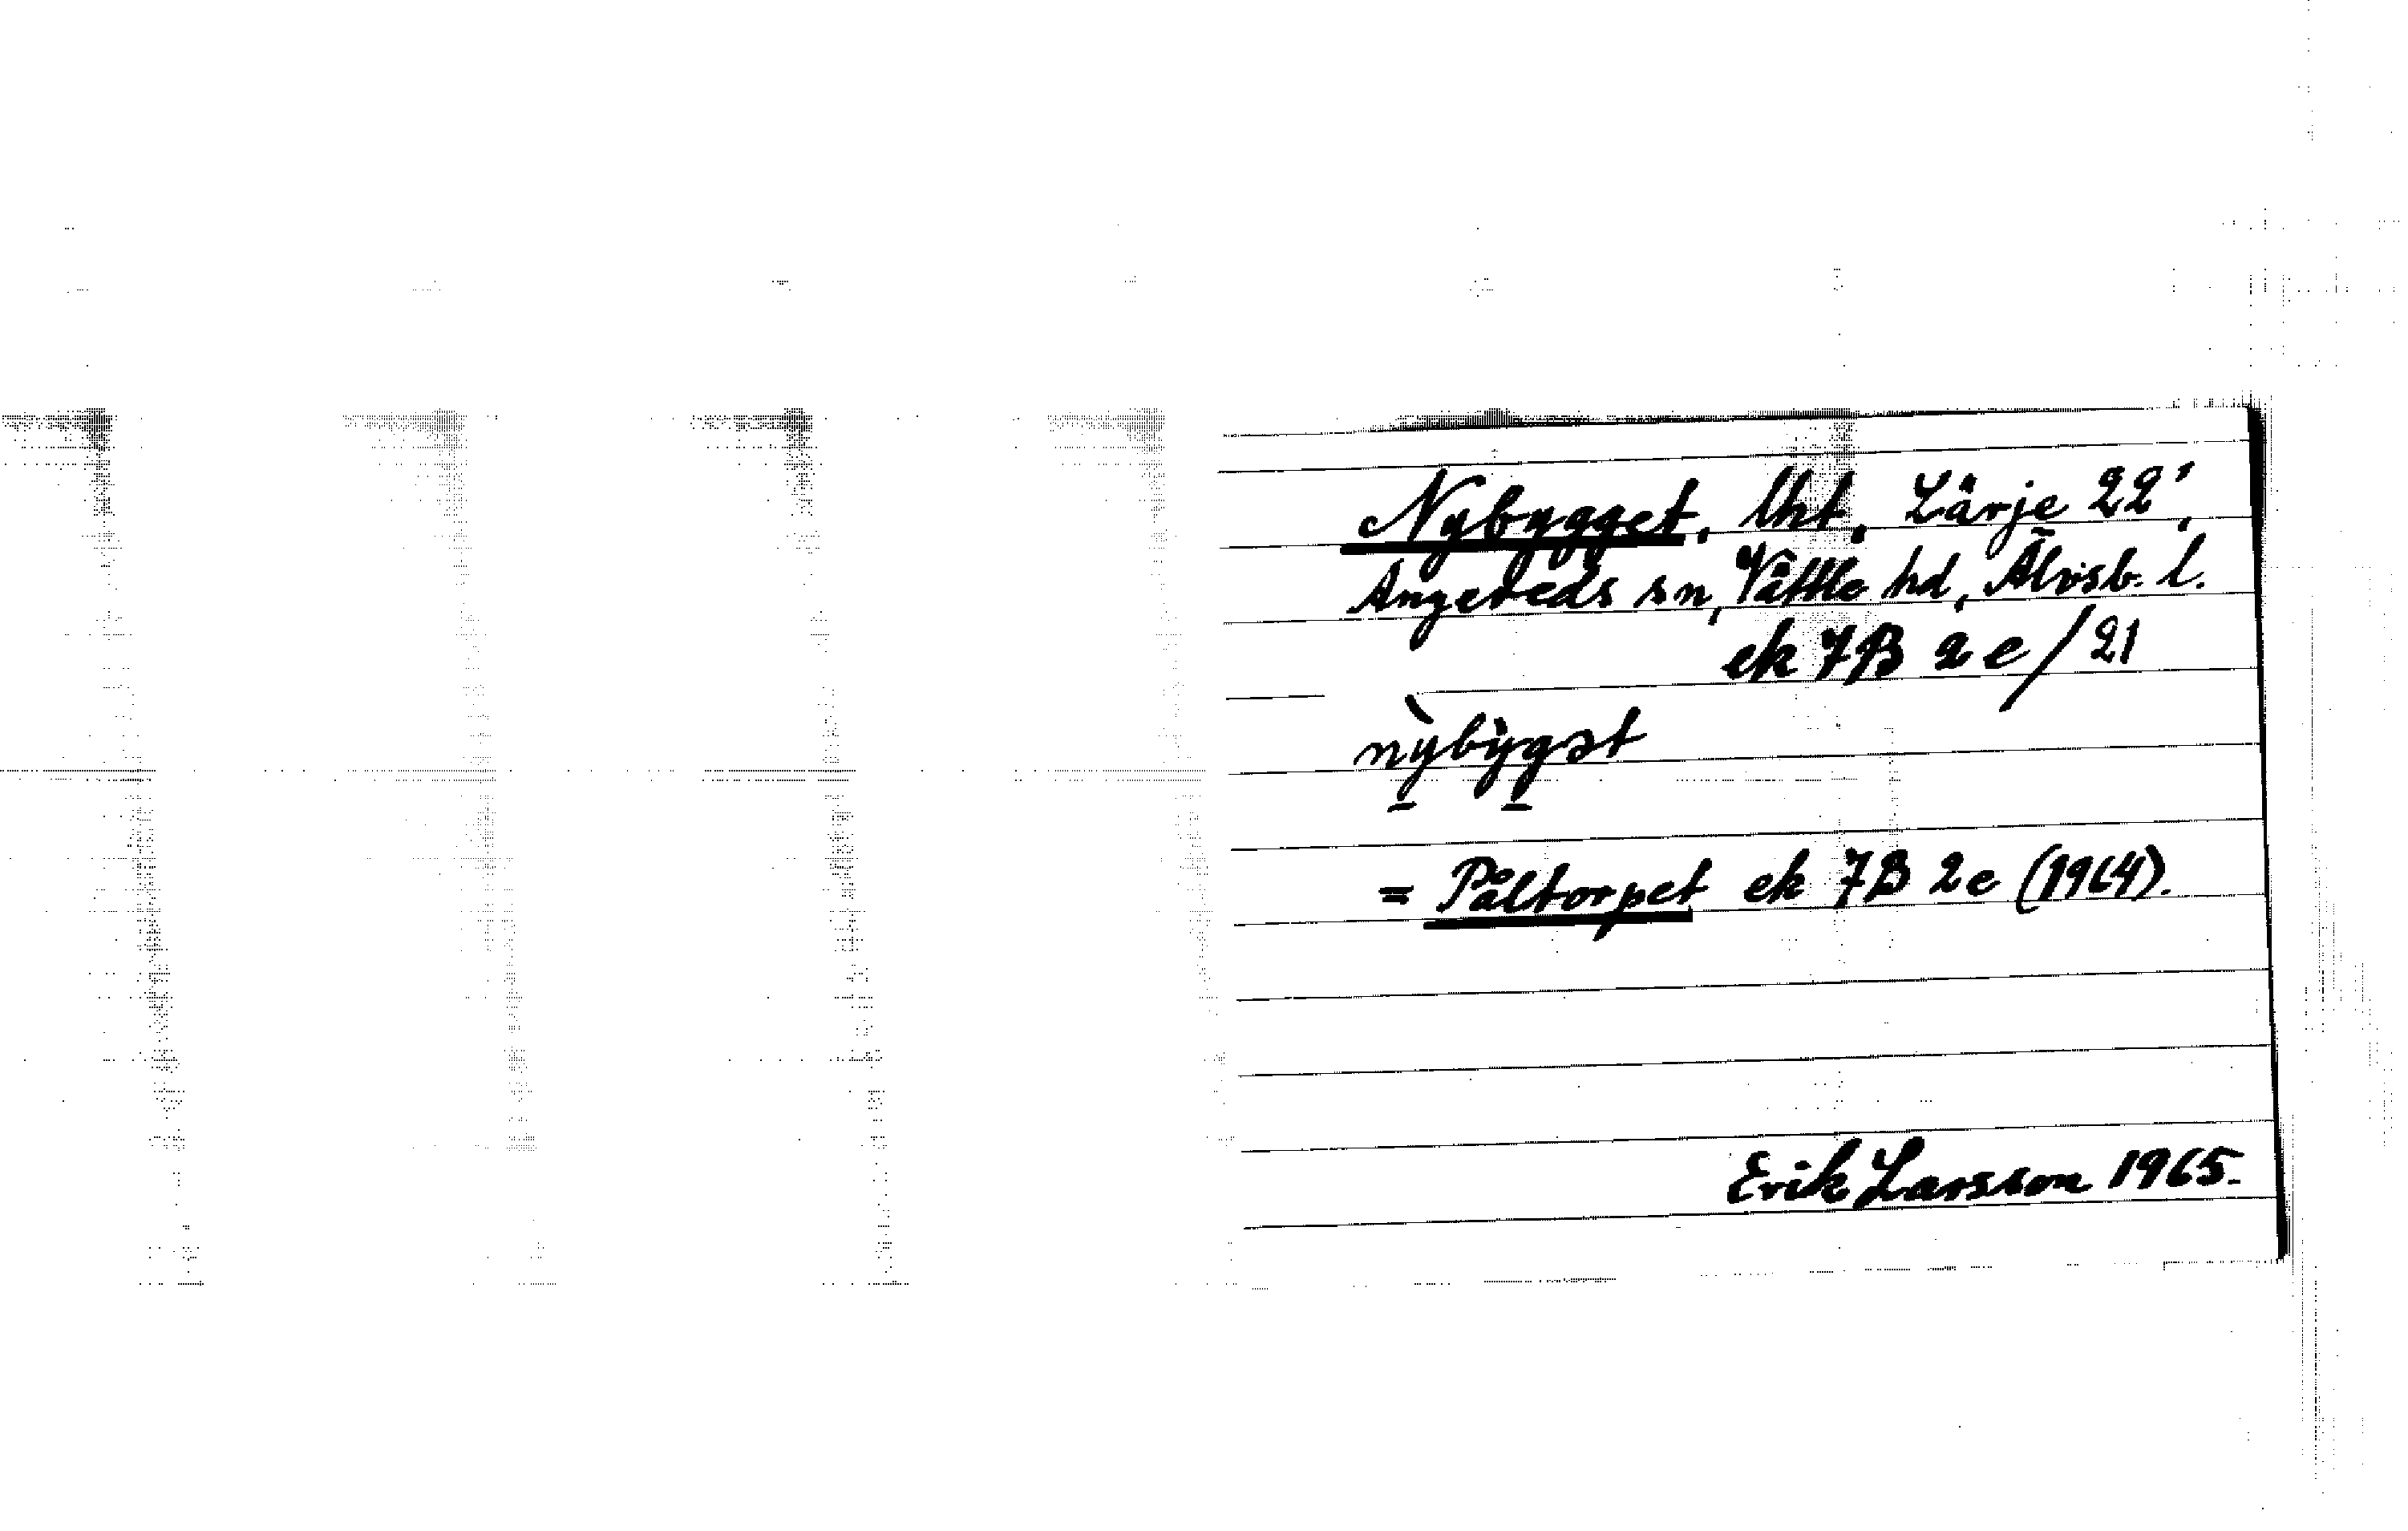 Nybygget, lht, Lärje 22¹,
Angereds sn, Vättle hd, Älvsb. l.
ek 7B 2e/21
nỳbỳgət
= Påltorpet ek 7B 2e (1964).
Erik Larsson 1965.